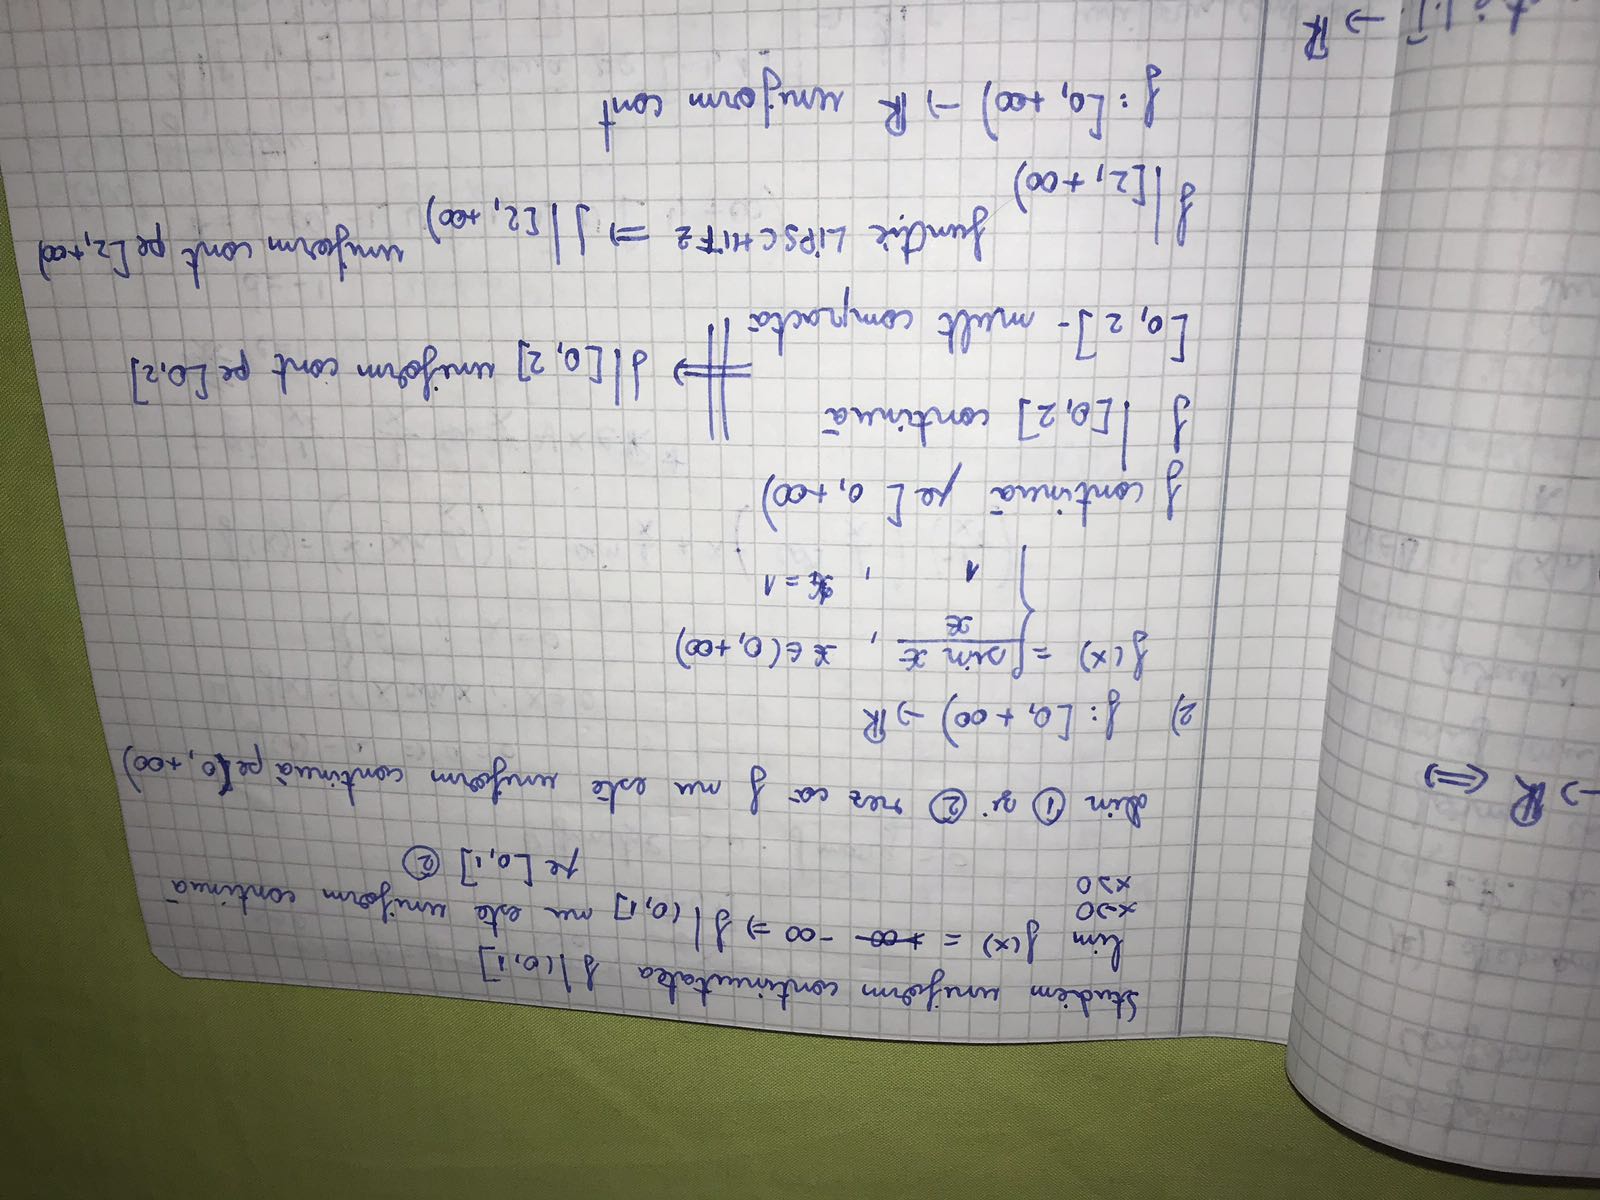 Studiem uniform continuitatea f|(0,1]
lim f(x) = +∞ -∞ => f|(0,1] nu este uniform continuă
x→0
x>0
pe [0,1] ②
din ① și ② rez că f nu este uniform continuă pe (0,+∞)
2) f: [0,+∞) → ℝ
f(x) = { sin x / x , x ∈ (0,+∞)
1 , x = 1
f continuă pe [0,+∞)
f|[0,2] continuă
[0,2] - mult compactă
=> f|[0,2] uniform cont pe [0,2]
f|[2,+∞) funcție LIPSCHITZ => f|[2,+∞) uniform cont pe [2,+∞)
f: [0,+∞) → ℝ uniform cont
→ ℝ <=>
→ ℝ